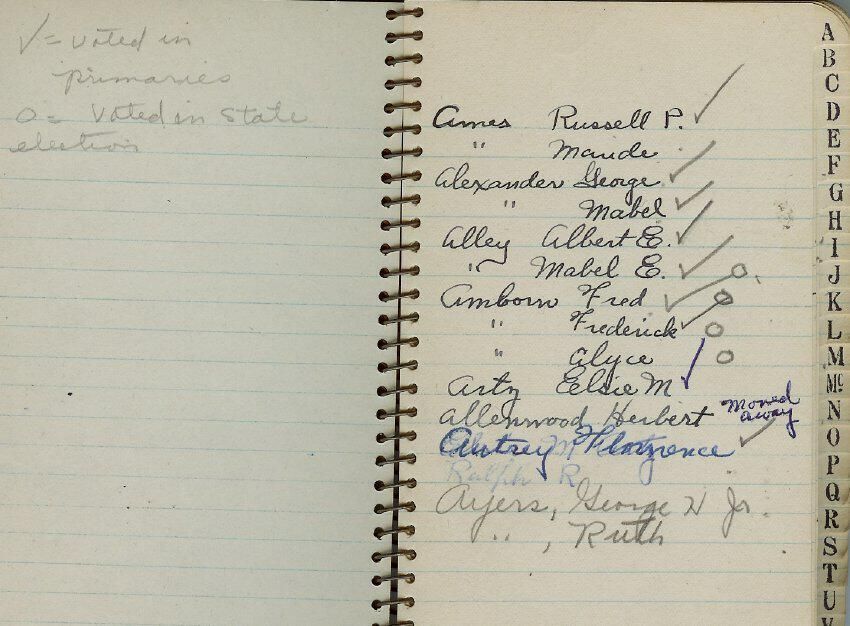 ✓ = voted in
primaries
O = Voted in State
election
Ames Russell P. ✓
" Maude ✓
Alexander George ✓
" Mabel ✓
Alley Albert E. ✓
" Mabel E. ✓ O
Amborn Fred ✓ O
" Frederick ✓ O
" Alyce O
Arty Elsie M ✓
Allenwood Herbert Moved away
Autrey Florence ✓
Ralph R
Ayers, George W Jr.
" , Ruth
A
B
C
D
E
F
G
H
I
J
K
L
M
Mc
N
O
P
Q
R
S
T
U
V